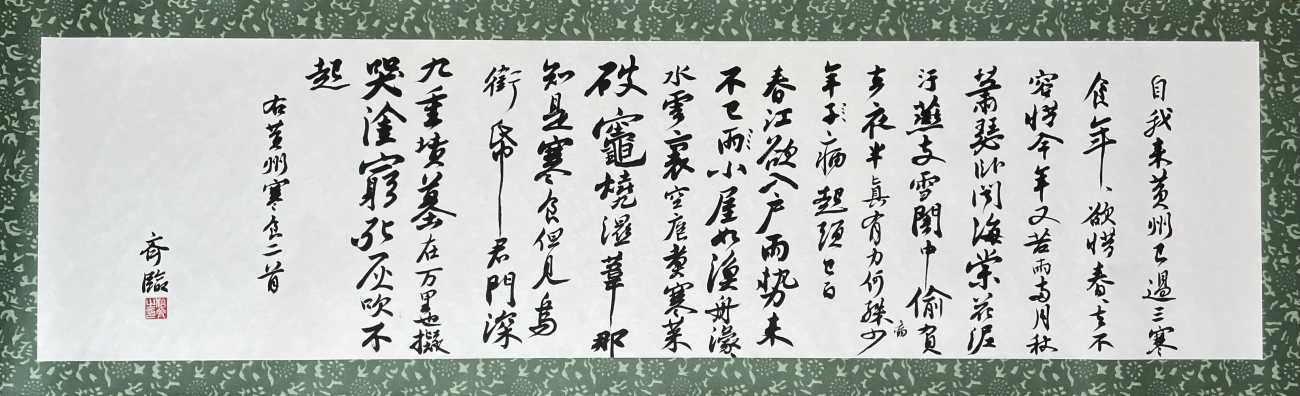 自我来黄州已過三寒
食年〻欲惜春〻去不
容惜今年又苦雨兩月秋
蕭瑟卧聞海棠花泥
汙燕支雪闇中偷負
去夜半真有力何殊病少
年子病起頭已白
春江欲入户雨勢来
不已雨小屋如漁舟濛〻
水雲裏空庖煮寒菜
破竈燒濕葦那
知是寒食但見烏
銜帋君門深
九重墳墓在万里也擬
哭塗窮死灰吹不
起
右黄州寒食二首
齊臨